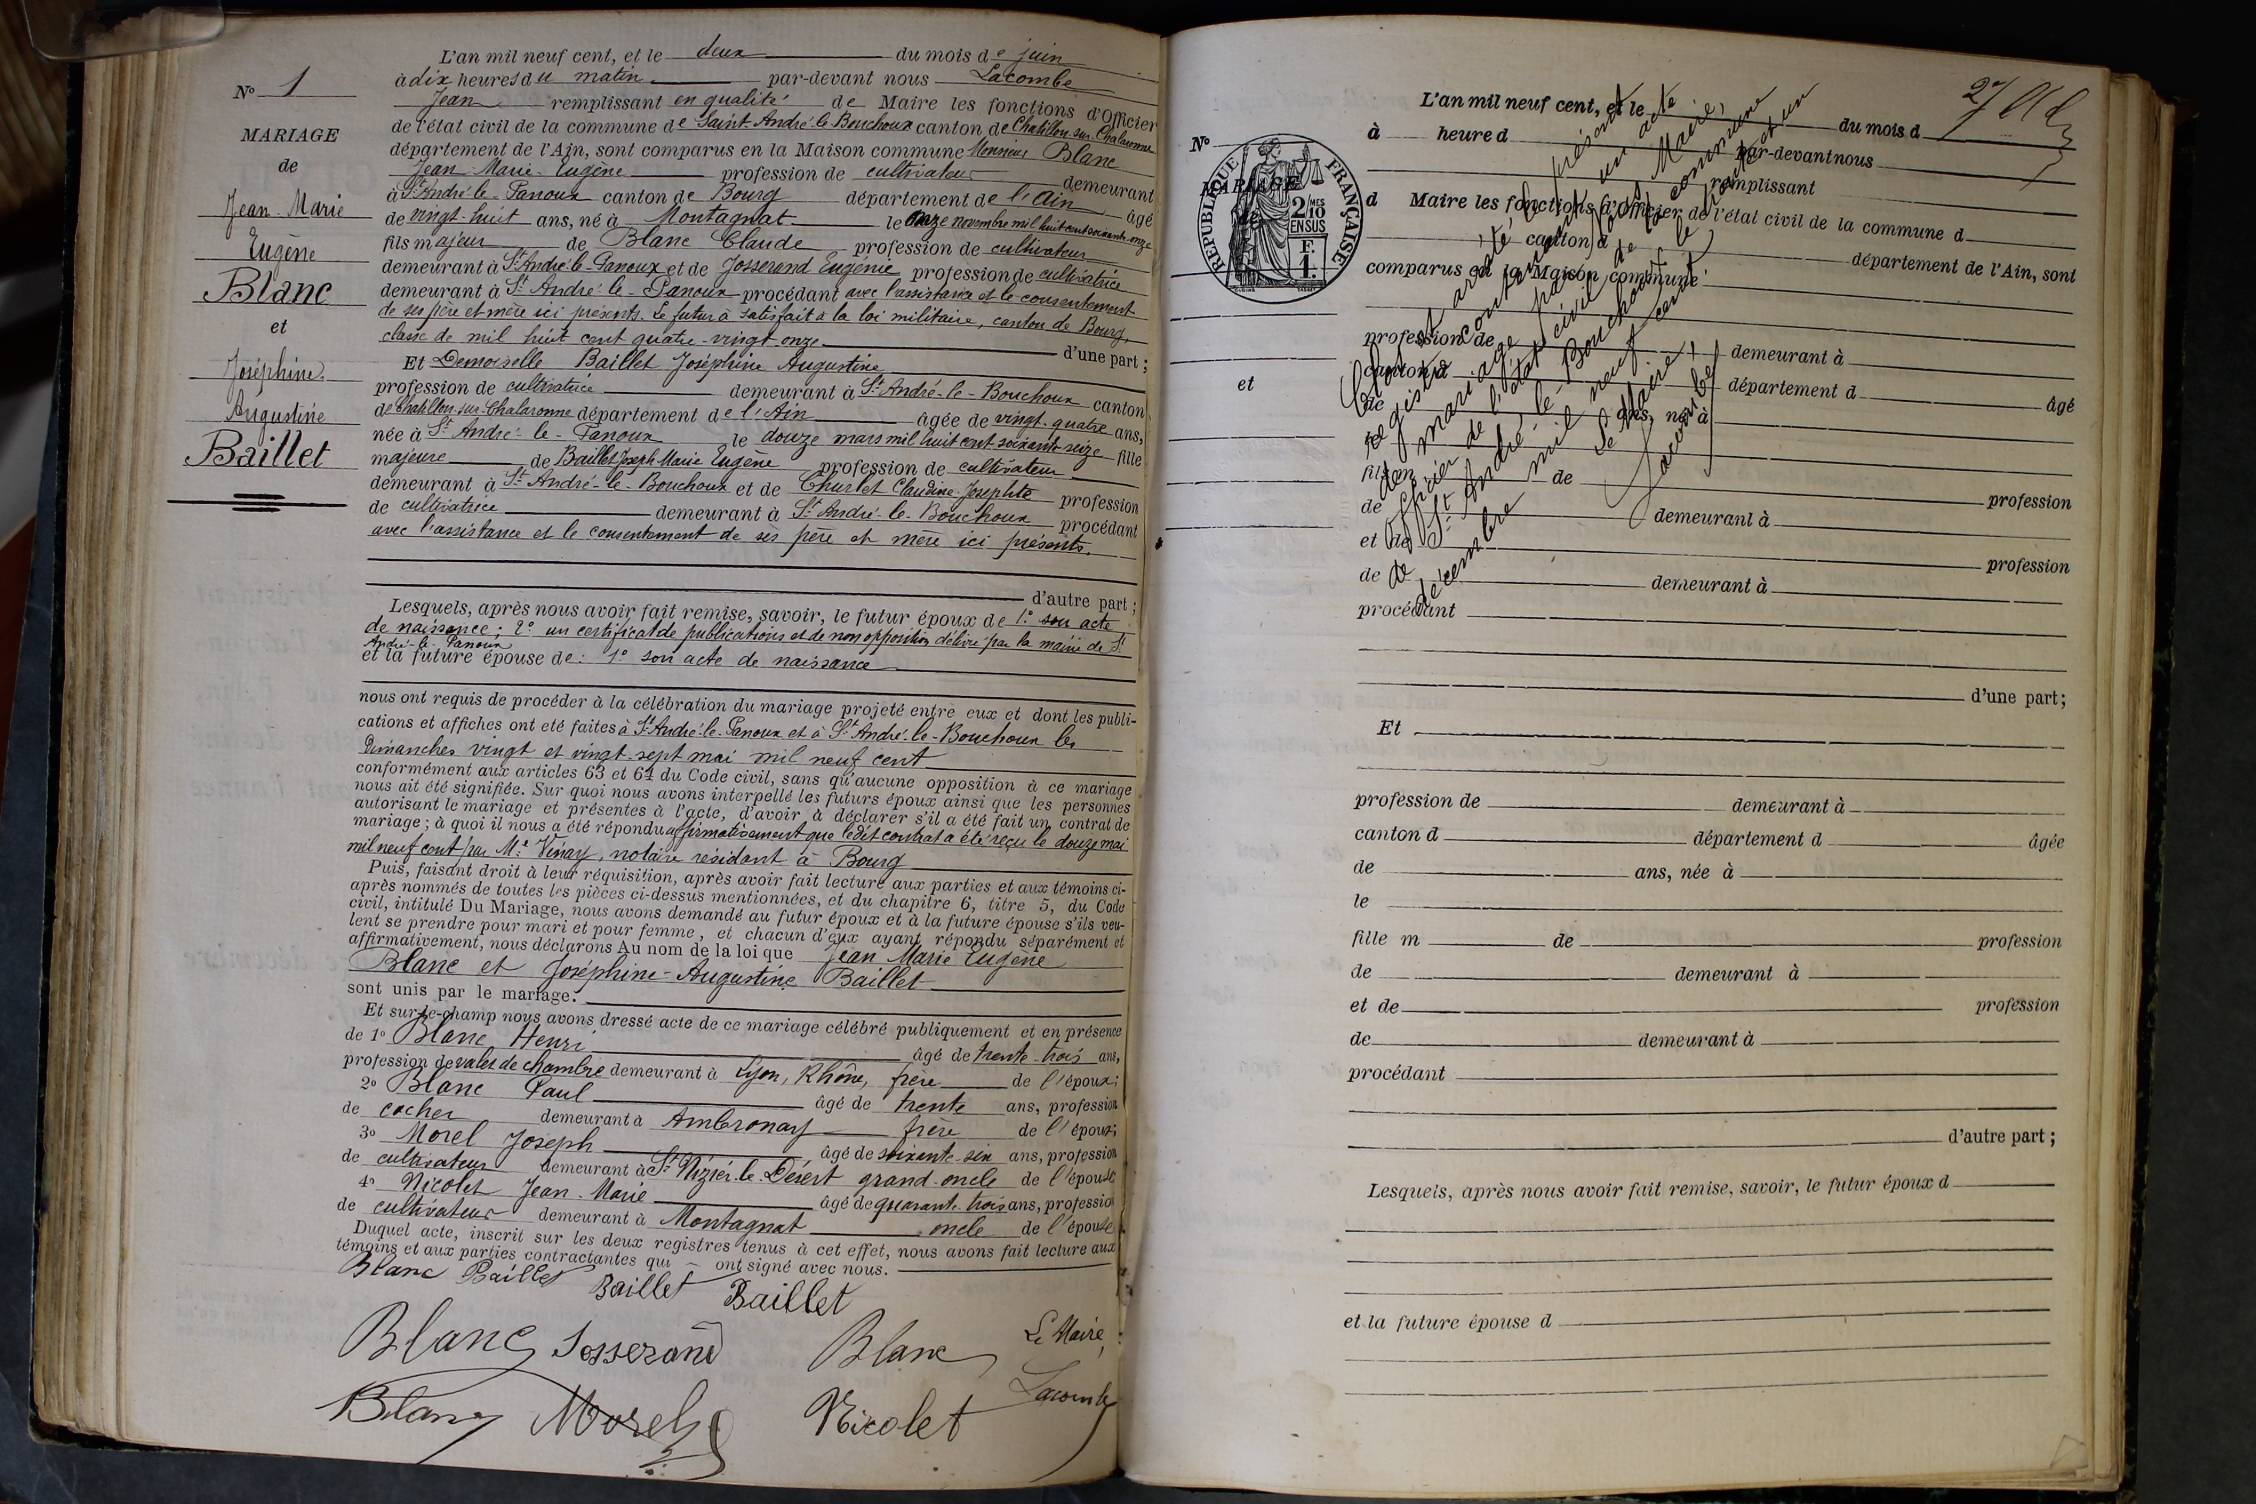 L'an mil neuf cent, et le deux du mois de juin
à dix heures du matin par-devant nous Lacombe
Jean remplissant en qualité de Maire les fonctions d'Officier
de l'état civil de la commune de Saint André-le-Bouchoux canton de Chatillon-sur-Chalaronne
département de l'Ain, sont comparus en la Maison commune Monsieur Blanc
Jean-Marie-Eugène profession de cultivateur demeurant
à St André-le-Panoux canton de Bourg département de l'Ain âgé
de vingt-huit ans, né à Montagnat le onze novembre mil huit cent soixante-onze
fils majeur de Blanc Claude profession de cultivateur
demeurant à St André-le-Panoux et de Josserand Eugénie profession de cultivatrice
demeurant à St André-le-Panoux procédant avec l'assistance et le consentement
de ses père et mère ici présents. Le futur a satisfait à la loi militaire, canton de Bourg,
classe de mil huit cent quatre-vingt-onze d'une part;
Et Demoiselle Baillet Joséphine Augustine
profession de cultivatrice demeurant à St André-le-Bouchoux canton
de Chatillon-sur-Chalaronne département de l'Ain âgée de vingt-quatre ans,
née à St André-le-Panoux le douze mars mil huit cent soixante-seize fille
majeure de Baillet Joseph Marie Eugène profession de cultivateur
demeurant à St André-le-Bouchoux et de Churlet Claudine-Josephte profession
de cultivatrice demeurant à St André-le-Bouchoux procédant
avec l'assistance et le consentement de ses père et mère ici présents.
d'autre part;
Lesquels, après nous avoir fait remise, savoir, le futur époux de 1° son acte
de naissance; 2° un certificat de publications et de non opposition délivré par la mairie de St
André-le-Panoux
et la future épouse de: 1° son acte de naissance
nous ont requis de procéder à la célébration du mariage projeté entre eux et dont les publi-
cations et affiches ont été faites à St André-le-Panoux et à St André-le-Bouchoux les
Dimanches vingt et vingt-sept mai mil neuf cent
conformément aux articles 63 et 64 du Code civil, sans qu'aucune opposition à ce mariage
nous ait été signifiée. Sur quoi nous avons interpellé les futurs époux ainsi que les personnes
autorisant le mariage et présentes à l'acte, d'avoir à déclarer s'il a été fait un contrat de
mariage; à quoi il nous a été répondu affirmativement que ledit contrat a été reçu le douze mai
mil neuf cent par Me Vinay, notaire résidant à Bourg
Puis, faisant droit à leur réquisition, après avoir fait lecture aux parties et aux témoins ci-
après nommés de toutes les pièces ci-dessus mentionnées, et du chapitre 6, titre 5, du Code
civil, intitulé Du Mariage, nous avons demandé au futur époux et à la future épouse s'ils veu-
lent se prendre pour mari et pour femme, et chacun d'eux ayant répondu séparément et
affirmativement, nous déclarons Au nom de la loi que Jean Marie Eugène
Blanc et Joséphine-Augustine Baillet
sont unis par le mariage.
Et sur-le-champ nous avons dressé acte de ce mariage célébré publiquement et en présence
de 1° Blanc Henri âgé de trente-trois ans,
profession de valet de chambre demeurant à Lyon, Rhône, frère de l'époux;
2° Blanc Paul âgé de trente ans, profession
de cocher demeurant à Ambronay frère de l'époux;
3° Morel Joseph âgé de soixante-six ans, profession
de cultivateur demeurant à St Nizier-le-Désert grand-oncle de l'épouse
4° Nicolet Jean-Marie âgé de quarante-trois ans, profession
de cultivateur demeurant à Montagnat oncle de l'épouse
Duquel acte, inscrit sur les deux registres tenus à cet effet, nous avons fait lecture aux
témoins et aux parties contractantes qui ont signé avec nous.
Blanc Baillet Baillet Baillet
Blanc Josserand Blanc Le Maire,
Blanc Morel Nicolet Lacombe
N° 1
MARIAGE
de
Jean-Marie
Eugène
Blanc
et
Joséphine
Augustine
Baillet
27
L'an mil neuf cent, et le du mois d
à heure d par-devant nous
remplissant
d Maire les fonctions d'Officier de l'état civil de la commune d
canton d département de l'Ain, sont
comparus en la Maison commune
profession de demeurant à
canton d département d âgé
de ans, né à
fils m de profession
de demeurant à
et de profession
de demeurant à
procédant
d'une part;
Et
profession de demeurant à
canton d département d âgée
de ans, née à
le
fille m de profession
de demeurant à
et de profession
de demeurant à
procédant
d'autre part;
Lesquels, après nous avoir fait remise, savoir, le futur époux d
et la future épouse d
N°
MARIAGE
de
et
RÉPUBLIQUE FRANÇAISE
2/10 MES
EN SUS
1 F.
Clos et arrêté le présent
registre contenant un acte
de mariage par nous Maire,
officier de l'état civil de la commune
de St André-le-Bouchoux le trente et un
décembre mil neuf cent
Le Maire,
Lacombe